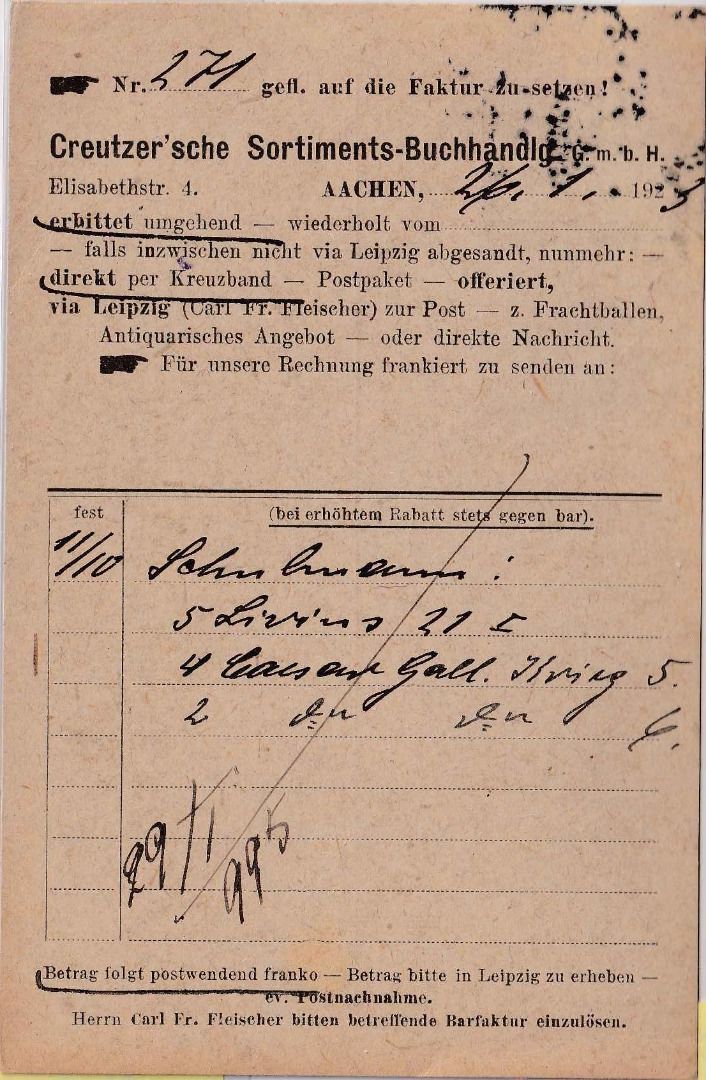 Nr. 271 gefl. auf die Faktur zu setzen!
Creutzer'sche Sortiments-Buchhandlg. G. m. b. H.
Elisabethstr. 4. AACHEN, 26. 1. 1923
erbittet umgehend — wiederholt vom
— falls inzwischen nicht via Leipzig abgesandt, nunmehr: —
direkt per Kreuzband — Postpaket — offeriert,
via Leipzig (Carl Fr. Fleischer) zur Post — z. Frachtballen,
Antiquarisches Angebot — oder direkte Nachricht.
Für unsere Rechnung frankiert zu senden an:
fest (bei erhöhtem Rabatt stets gegen bar).
11/10 Schulmann:
5 Livius 21 I
4 Caesar Gall. Krieg 5.
2 6.
29/1
Betrag folgt postwendend franko — Betrag bitte in Leipzig zu erheben —
ev. Postnachnahme.
Herrn Carl Fr. Fleischer bitten betreffende Barfaktur einzulösen.